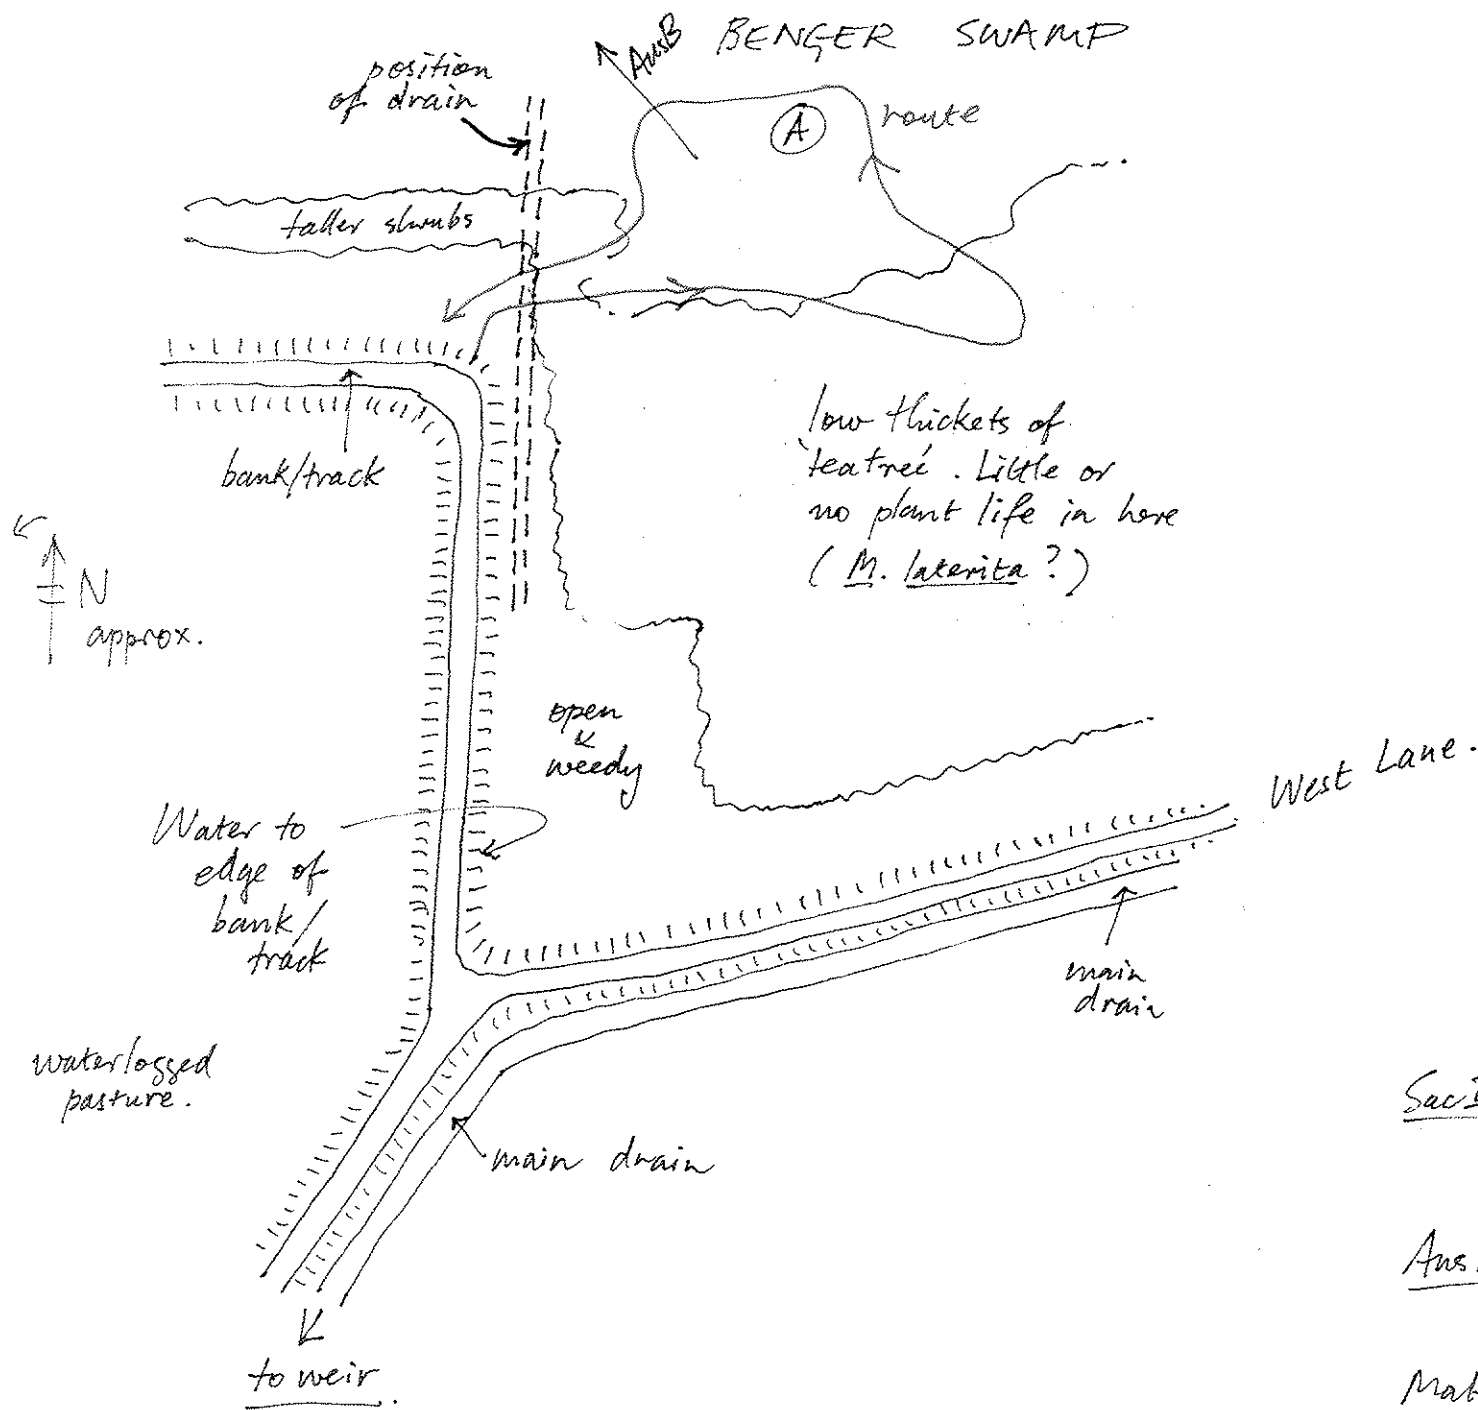 BENGER SWAMP
AusB
position
of drain
A
route
taller shrubs
bank/track
low thickets of
'teatree'. Little or
no plant life in here
(M. laterita?)
N
approx.
open
&
weedy
West Lane.
Water to
edge of
bank/
track
main
drain
waterlogged
pasture.
main drain
to weir.